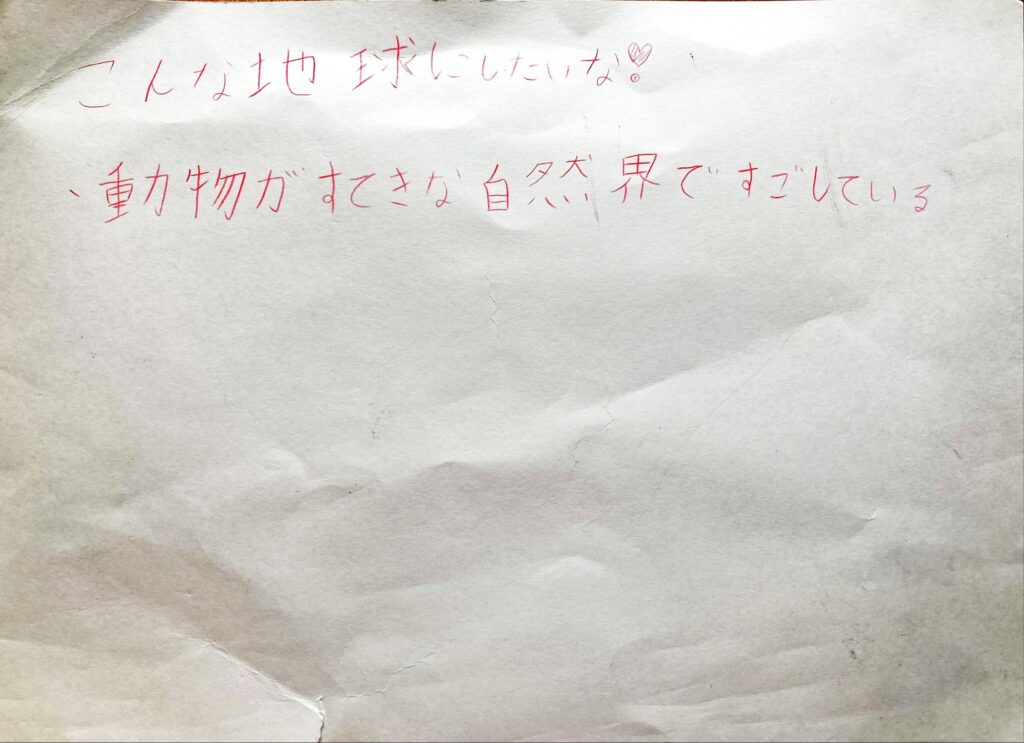 こんな地球にしたいな!
・動物がすてきな自然界ですごしている